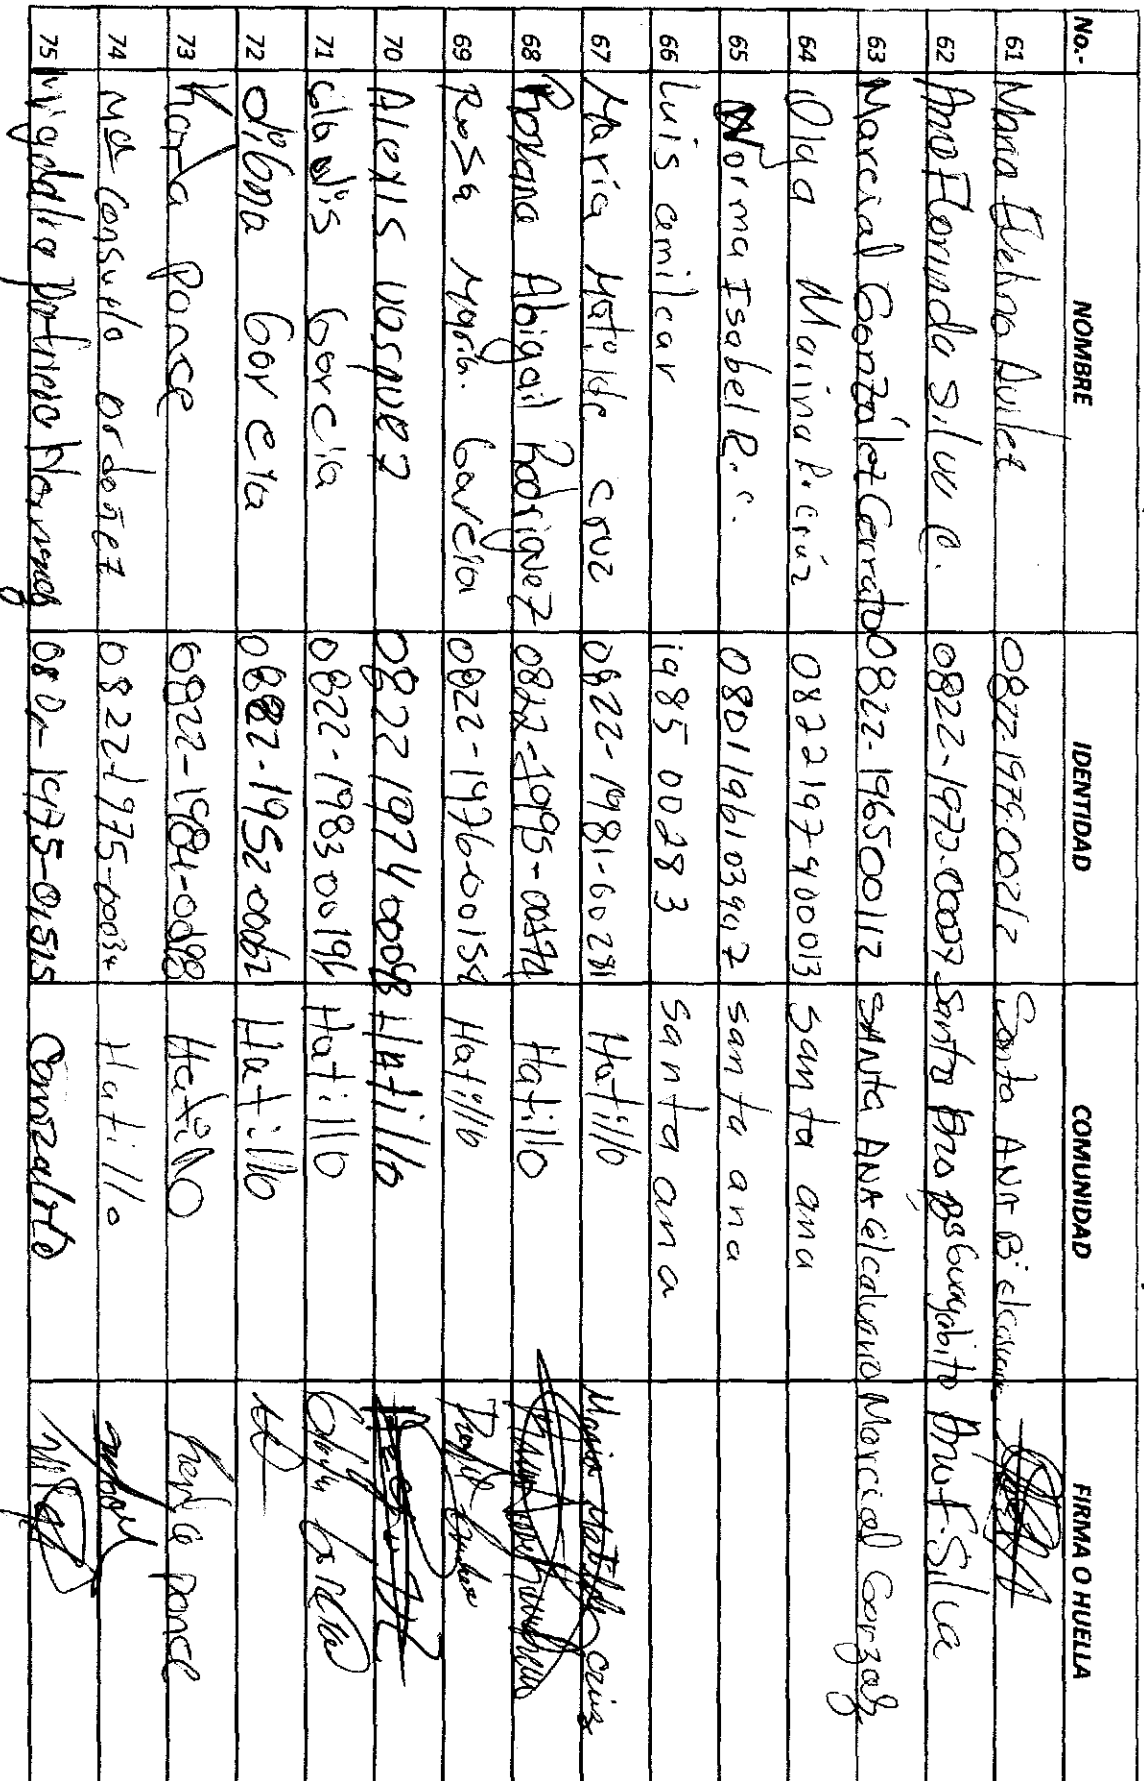 No.- NOMBRE IDENTIDAD COMUNIDAD FIRMA O HUELLA
61 Maria 0822-1979-00212 Santa ANA
62 Ana Florinda Silva 0822-1972-00007 Santa Ana F. Silva
63 Marcial González Cerrato 0822-196500112 SANta ANA el calvario Marcial Gonzalez
64 Olga Marina 0822197900013 Santa ana
65 Norma Isabel R. c. 0801196103947 santa ana
66 Luis amilcar 1985 00283 Santa ana
67 Maria Matilde cruz 0822-1981-00281 Hatillo Maria Matilde cruz
68 Roxana Abigail Rodriguez 0822-1995-00174 Hatillo
69 Rosa Maria. Garcia 0822-1976-00154 Hatillo
70 Alexis vasquez 0822 1974 00068 Hatillo
71 Gladis Garcia 0822-1983 00196 Hatillo Garcia
72 Garcia 0882-1952-00062 Hatillo
73 Karla Ponce 0822-1984- Hatillo Karla Ponce
74 Ma Consuelo ordoñez 0822-1975-00034 Hatillo
75 1975-01515